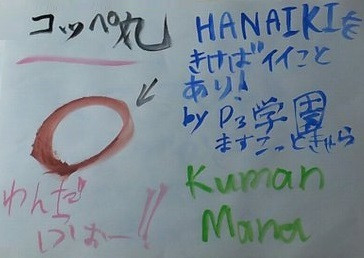 コッペ丸
HANAIKIを
きけばイイこと
あり!
by P3学園
ますこっときゃら
わんだ
ふぉー!!
Kuman
Mana